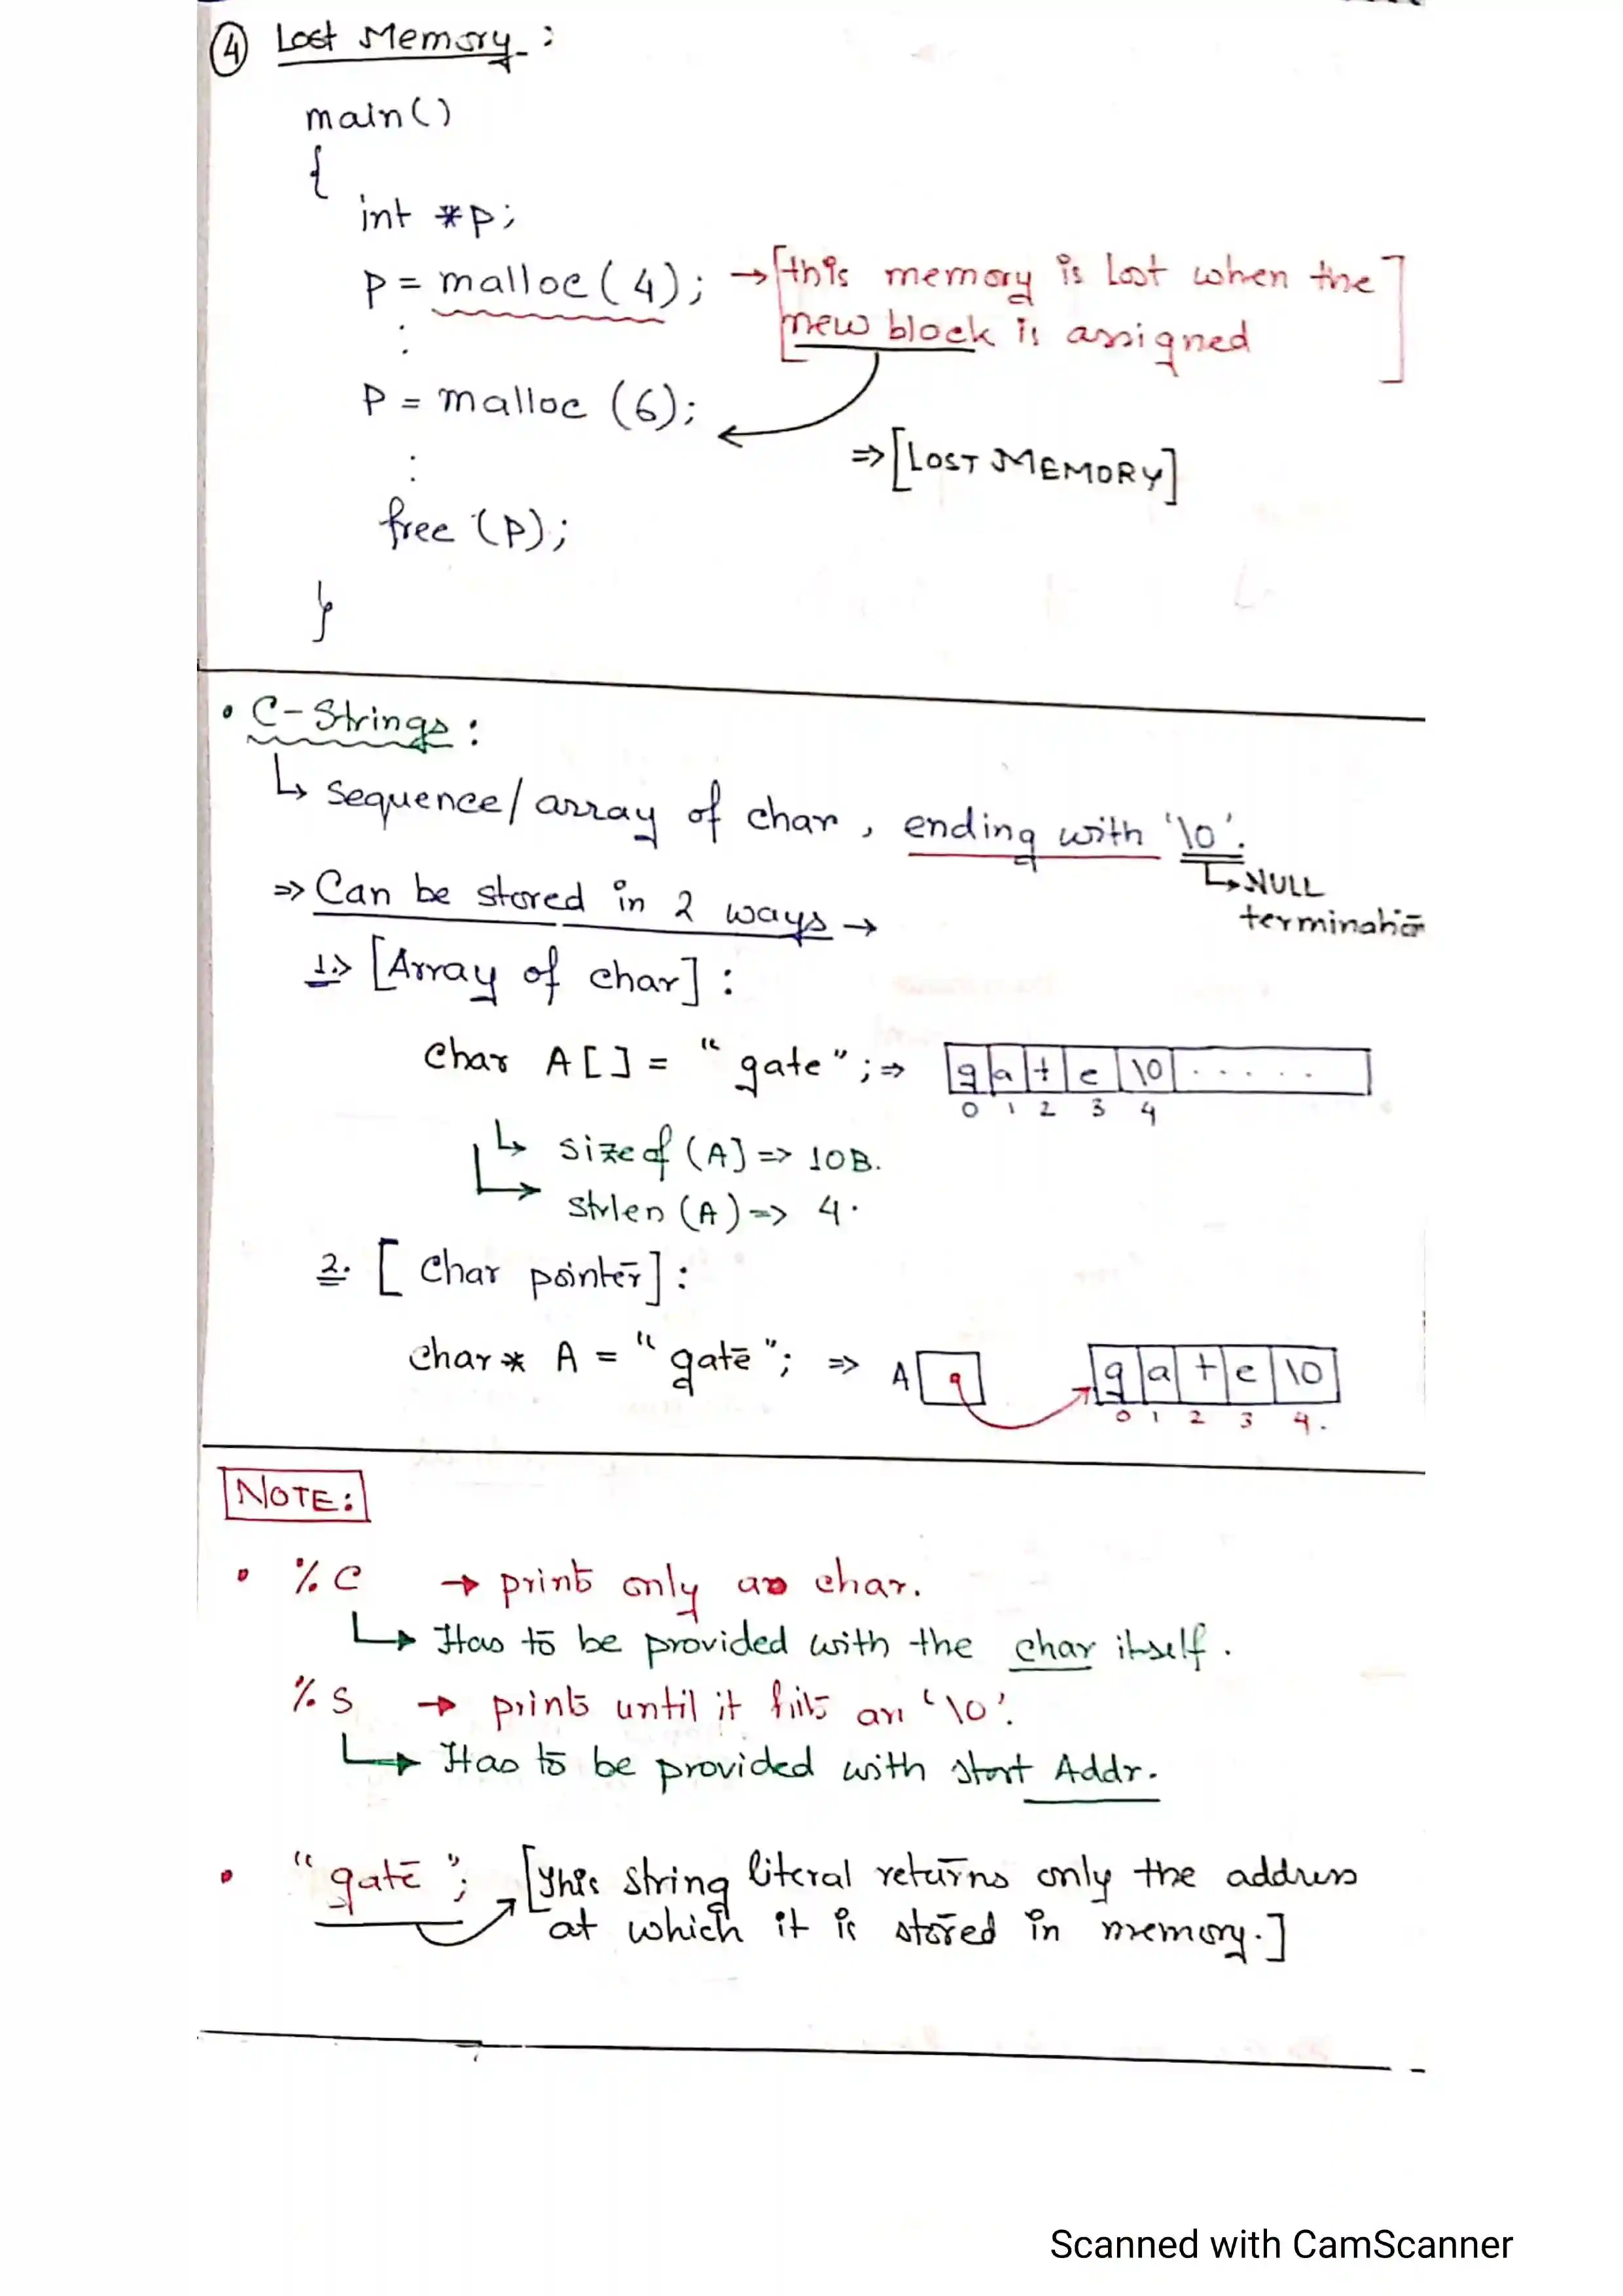 ④ Lost Memory :
main()
{
int *p;
p = malloc(4); → [this memory is lost when the
new block is assigned]
:
p = malloc (6);
⇒ [LOST MEMORY]
:
free (p);
}
• C-Strings :
↳ sequence/array of char, ending with '\0'.
↳ NULL
termination
⇒ Can be stored in 2 ways →
1.> [Array of char] :
char A[] = "gate"; ⇒ g a t e \0 . . . . .
0 1 2 3 4
↳ sizeof (A] => 10B.
→ strlen (A) => 4.
2. [Char pointer] :
char* A = "gate"; ⇒ A g a t e \0
0 1 2 3 4.
NOTE:
• %c → prints only a char.
↳ Has to be provided with the char itself.
%s → prints until it hits an '\0'.
↳ Has to be provided with start Addr.
• "gate"; [This string literal returns only the address
at which it is stored in memory.]
Scanned with CamScanner